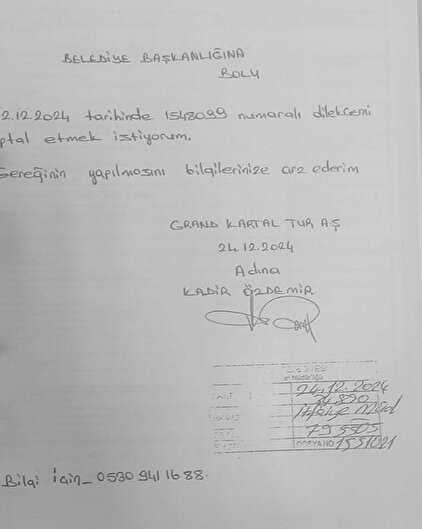 BELEDİYE BAŞKANLIĞINA
BOLU
2.12.2024 tarihinde 1548099 numaralı dilekçemi
ptal etmek istiyorum.
Gereğinin yapılmasını bilgilerinize arz ederim
GRAND KARTAL TUR A.Ş
24.12.2024
Adına
KADİR ÖZDEMİR.
24.12.2024
34890
İtfaiye Müd
795505
DOSYA NO 1551021
Bilgi İçin_ 0530 941 16 88.